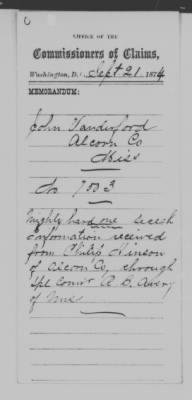 OFFICE OF THE
Commissioners of Claims,
Washington, D. C., Sept 21, 1874
MEMORANDUM:
John Vanderford
Alcorn Co
Miss
No 7553
Mighty hard one secesh
information received
from Philip Hinson
of Alcorn Co, through
Spl Comr A. B. Avery
of Miss